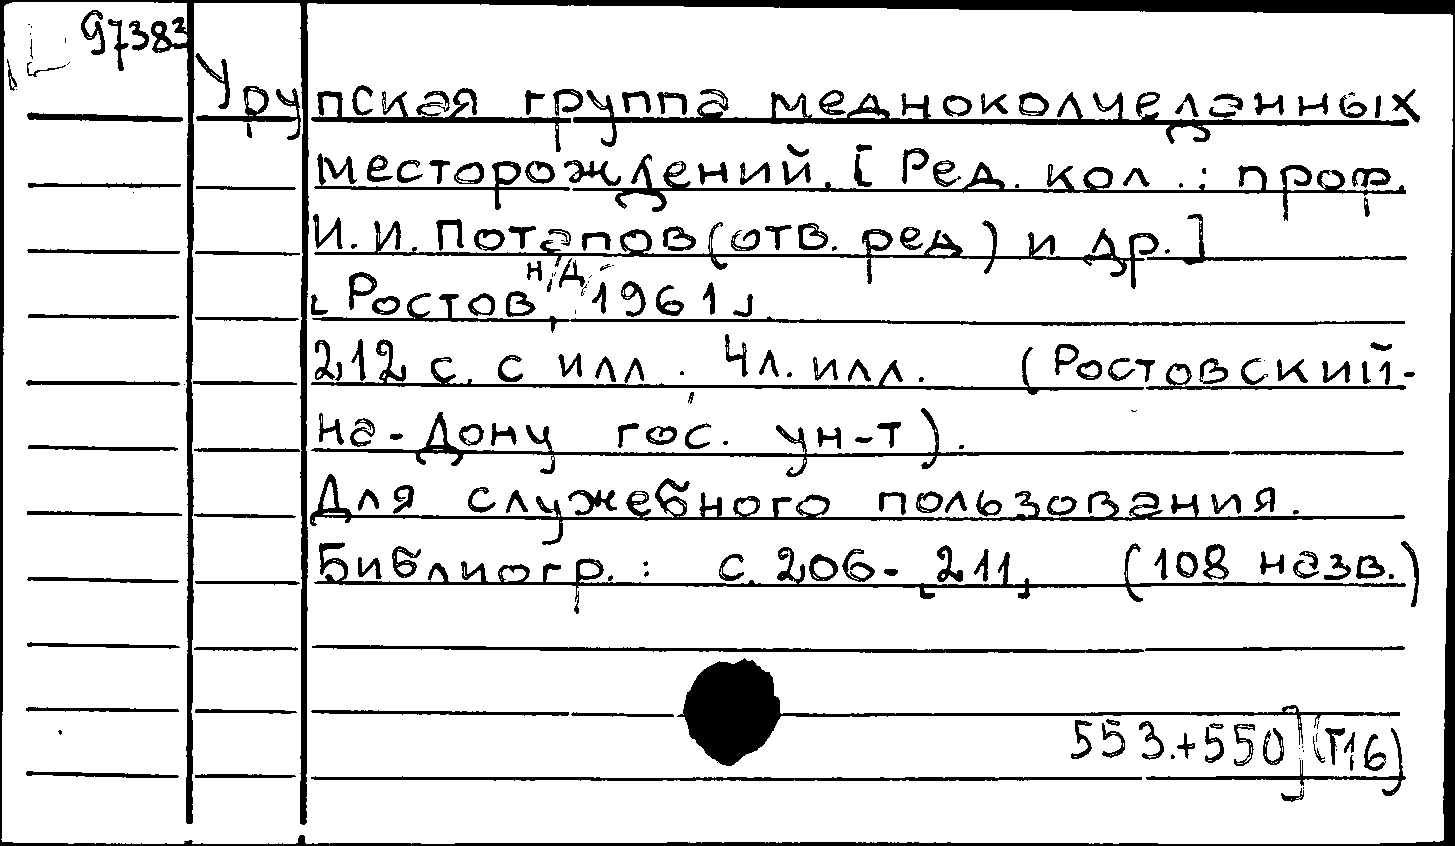 97383
Урупская группа медноколчеданных
месторождений. [Ред. кол.: проф.
И. И. Потапов (отв. ред) и др.]
[Ростов н/Д, 1961].
212 с. с илл., 4 л. илл. (Ростовский-
на-Дону гос. ун-т).
Для служебного пользования.
Библиогр.: с. 206-[211] (108 назв.)
553.+550] (Т16)